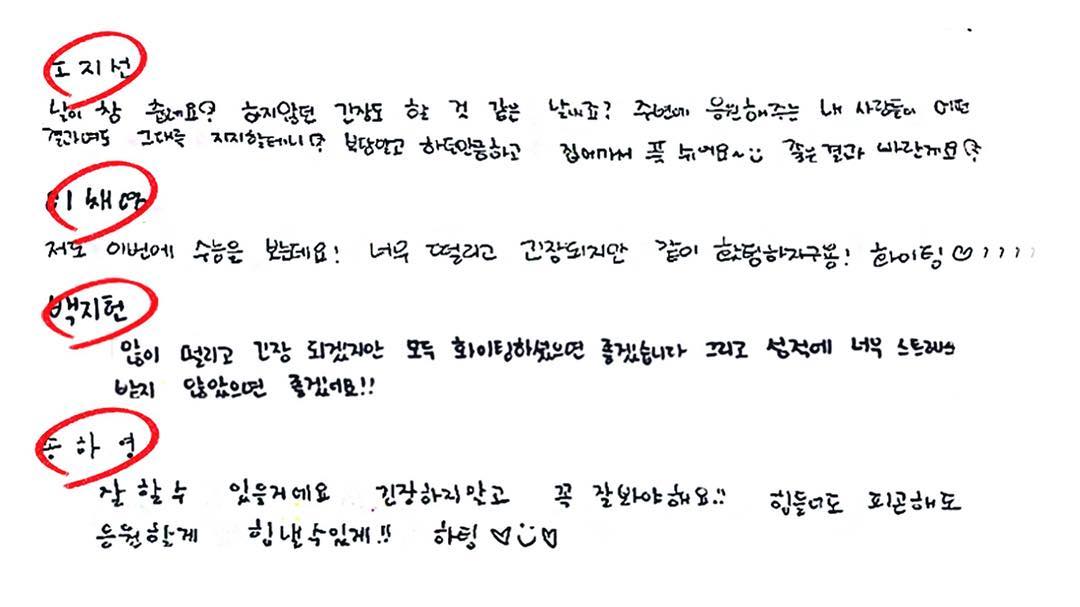 노지선
날이 참 춥네요? 하지않던 긴장도 할 것 같은 날이죠? 주변에 응원해주는 내 사람들이 어떤
결과여도 그대를 지지할테니 부담말고 하던만큼하고 집에가서 푹 쉬어요~ 좋은결과 바란게요
이채영
저도 이번에 수능을 보는데요! 너무 떨리고 긴장되지만 같이 화팅하자구용! 화이팅♡))))
백지헌
많이 떨리고 긴장 되겠지만 모두 화이팅하셨으면 좋겠습니다 그리고 성적에 너무 스트레스
받지 않았으면 좋겠어요!!
송하영
잘 할수 있을거에요 긴장하지말고 꼭 잘봐야해요!! 힘들어도 피곤해도
응원할게 힘낼수있게!! 하팅 ♡☺♡